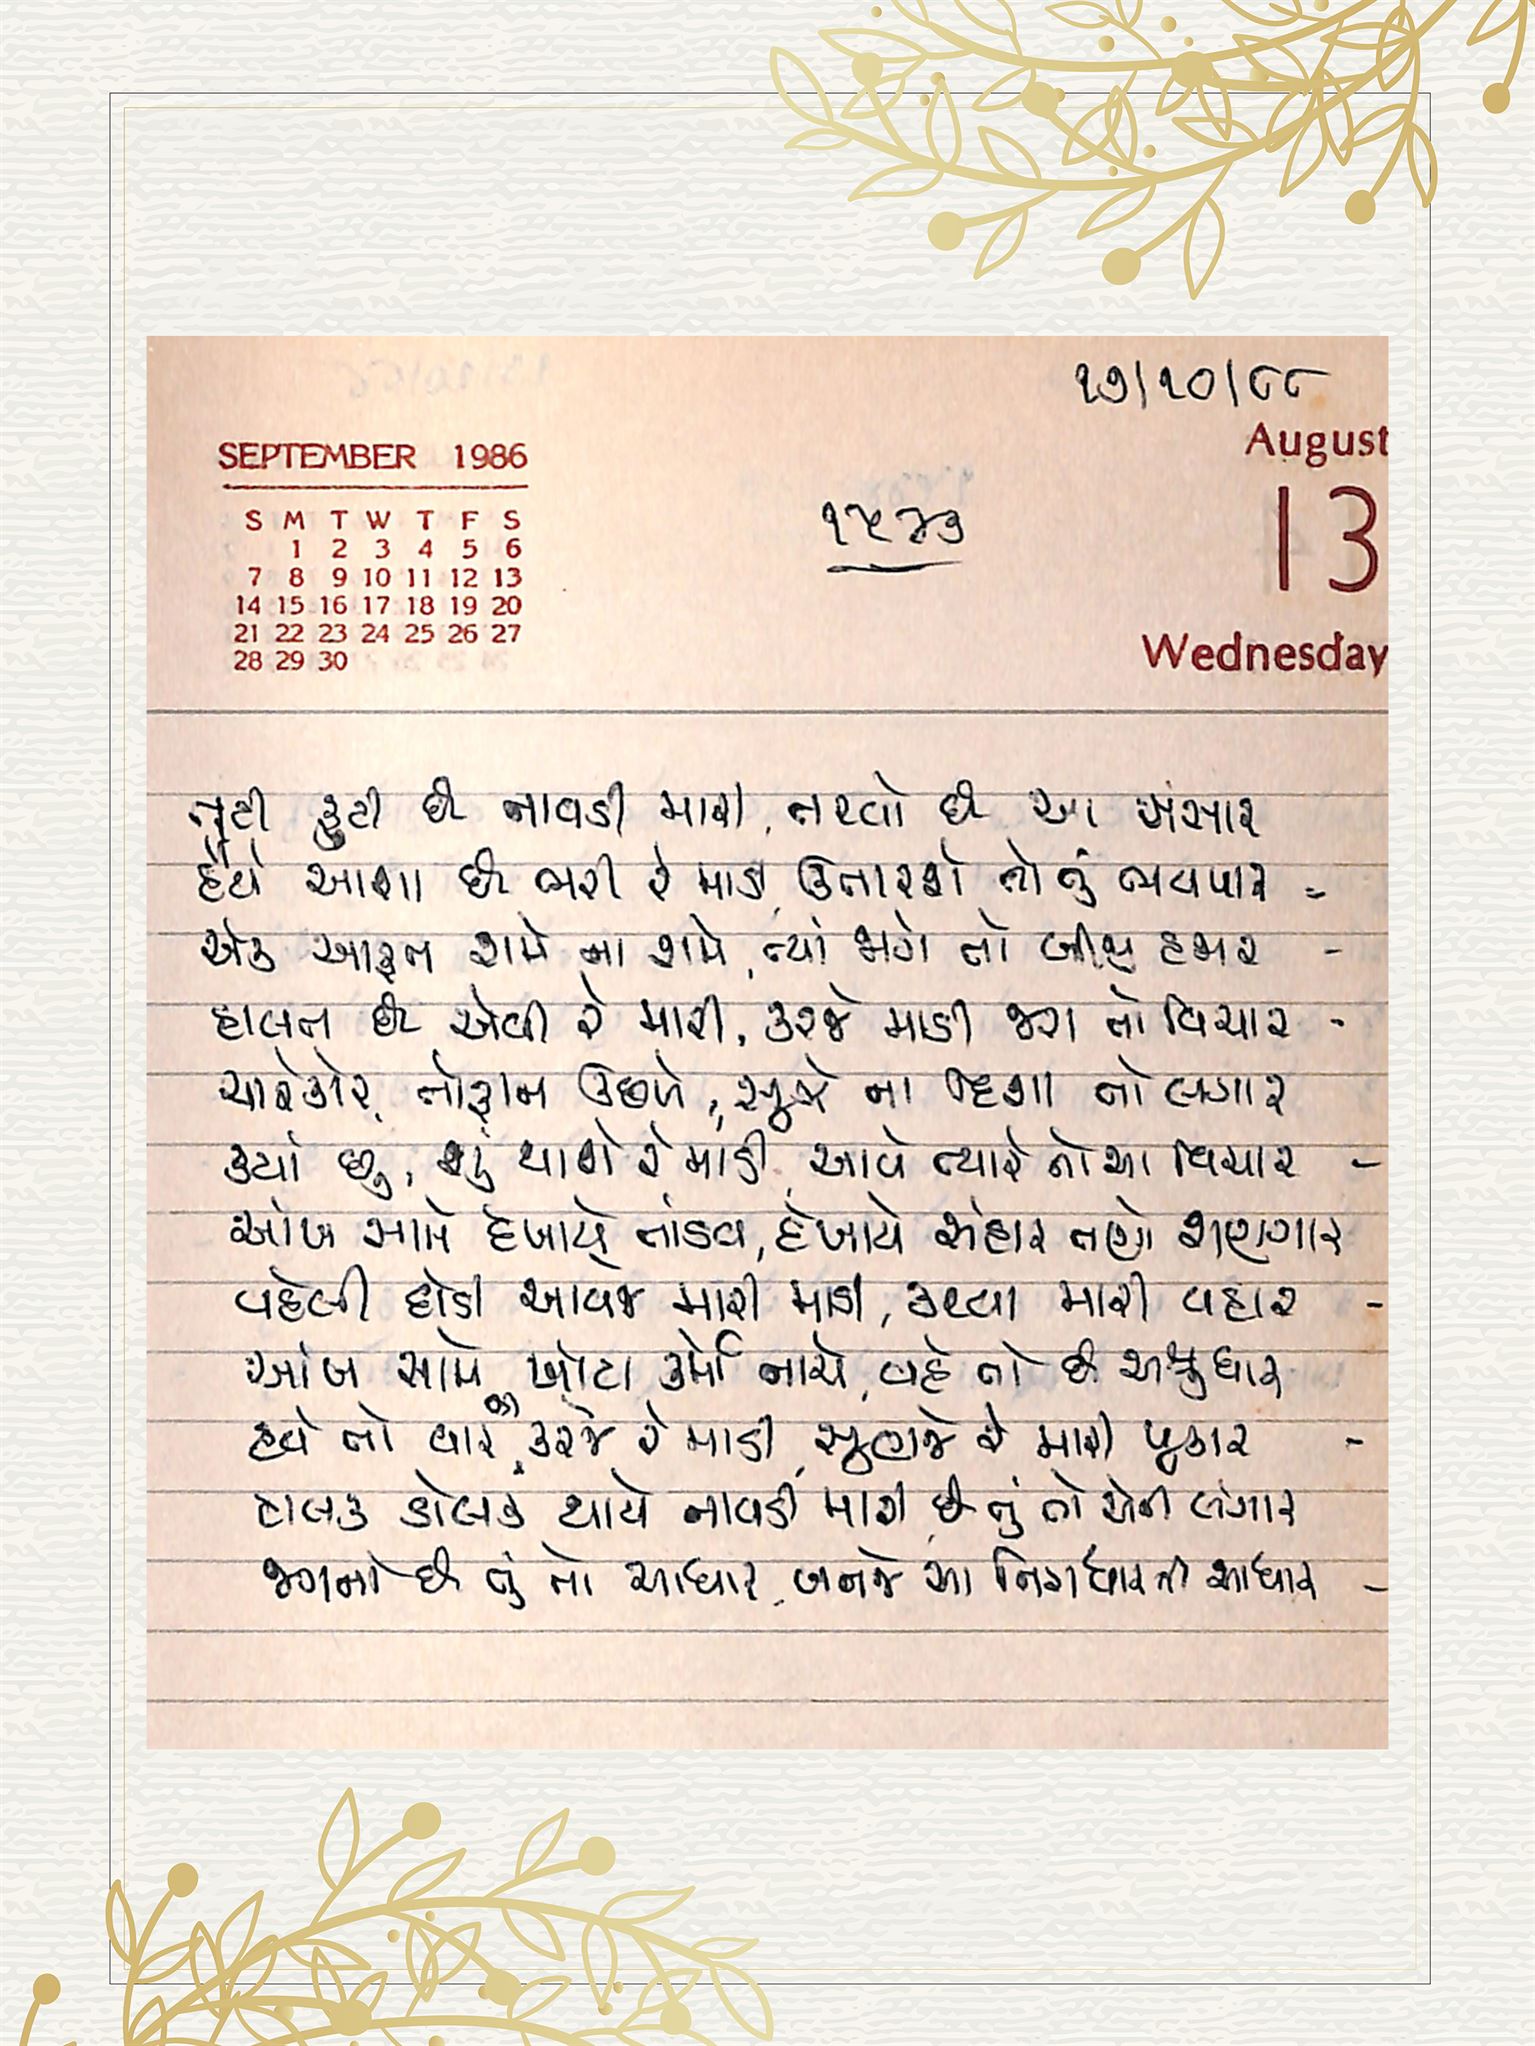 ૧૭/૧૦/૮૮
August
SEPTEMBER 1986
13
૧૫૪૩
S M T W T F S
1 2 3 4 5 6
7 8 9 10 11 12 13
14 15 16 17 18 19 20
21 22 23 24 25 26 27
28 29 30
Wednesday
તૂટી ફુટી છે નાવડી મારી, તરવો છે આ સંસાર
હૈયે આશા છે ભરી રે માડી, ઉતારશે તો તું ભવપાર -
એક આફત શમે ના શમે, ત્યાં જાગે તો બીજી હજાર -
હાલત છે એવી રે મારી, કરજે માડી જરા તો વિચાર -
ચારેકોર તોફાન ઉછળે, સૂઝે ના દિશા તો લગાર
ક્યાં છું, શું થાશે રે માડી, આવે ત્યારે તો આ વિચાર -
આંખ સામે દેખાયે તાંડવ, દેખાયે સંહાર તણો શણગાર
વહેલી દોડી આવજે મારી માડી, કરવા મારી વહાર -
આંખ સામે ખોટા કર્મો નાચે, વહે તો છે અશ્રુધાર
હવે તો વાર ના કરજે રે માડી, સૂણજે રે મારી પૂકાર -
હાલક ડોલક થાયે નાવડી મારી, છે તું તો એની લંગાર
જગનો છે તું તો આધાર, બનજે આ નિરાધારની આધાર -